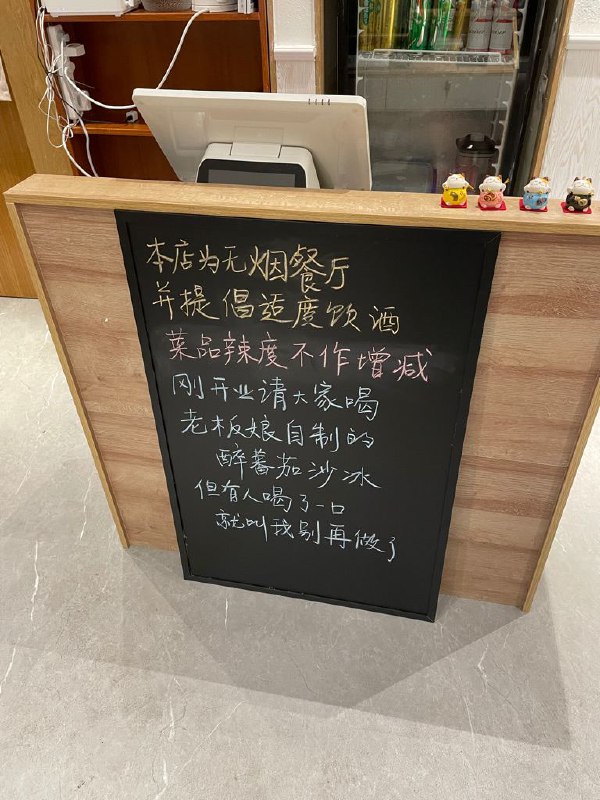 本店为无烟餐厅
并提倡适度饮酒
菜品辣度不作增减
刚开业请大家喝
老板娘自制的
醉蕃茄沙冰
但有人喝了一口
就叫我别再做了